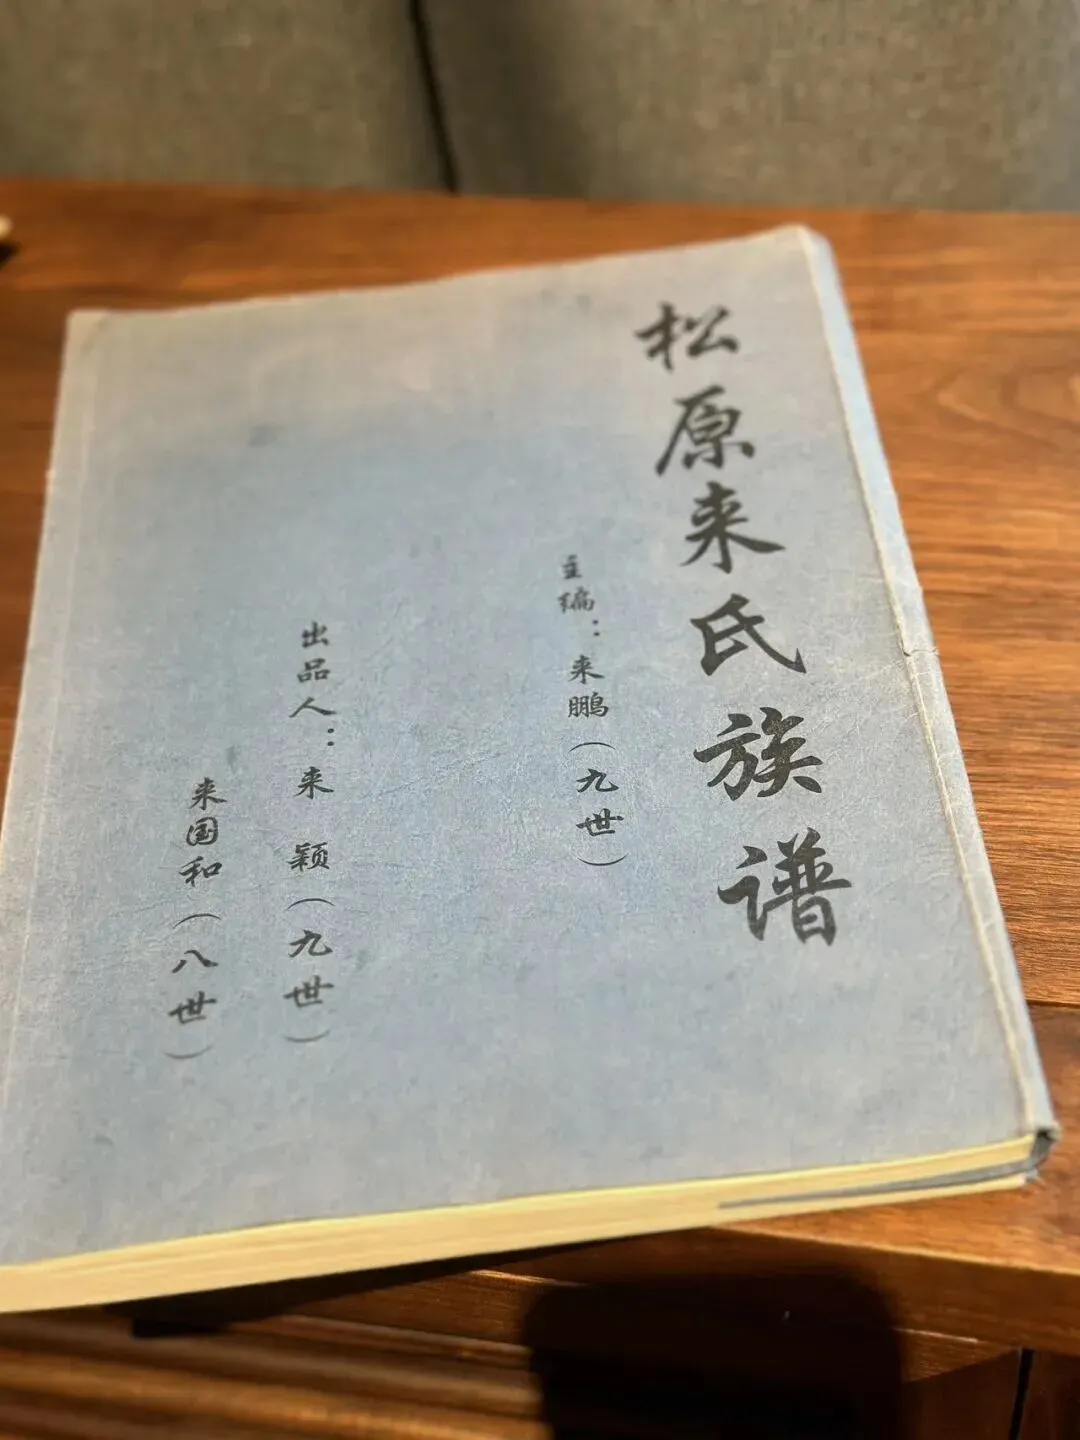 松原来氏族谱
主编：来鹏（九世）
出品人：来颖（九世）
来国和（八世）